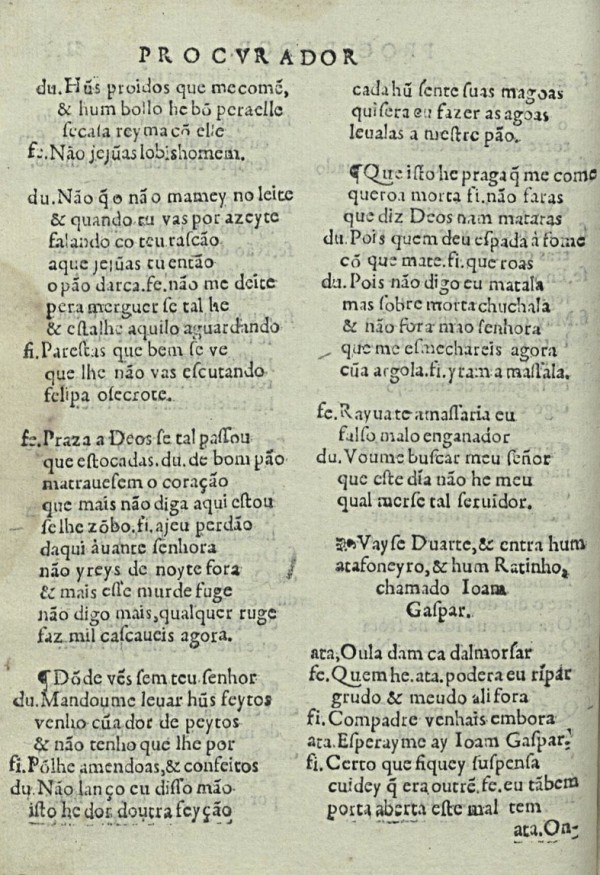 PROCVRADOR
du.Hũs proidos que mecomẽ,
& hum bollo he bõ peraelle
secaia reymacõ elle
fe.Não jejũas lobishomem.
du.Não q̃o não mamey no leite
& quando tu vas por azeyte
falando co teu rascão
aque jejũas tu então
o pão darca.fe.não me deite
pera merguer se tal he
& estalhe aquilo aguardando
fi.Parestas que bem se ve
que lhe não vas escutando
felipa osecrote.
fe.Praza a Deos se tal passou
que estocadas.du.de bom pão
matrauesem o coração
que mais não diga aqui estou
selhe zõbo.fi.ajeu perdão
daqui àuante senhora
não yreys de noyte fora
& mais esse murde fuge
não digo mais,qualquer ruge
faz mil cascaueis agora.
¶Dõde vẽs sem teu senhor
du.Mandoume leuar hũs feytos
venho cũa dor de peytos
& não tenho que lhe por
fi.Põlhe amendoas,& confeitos
du.Não lanço eu disso mão
isto he dor doutra feyção
cada hũ sente suas magoas
quisera eu fazer as agoas
leualas a mestre pão.
¶Que isto he praga q̃ me come
queroa morta fi.não faras
que diz Deos nam mataras
du.Pois quem deu espada à fome
cõ que mate.fi.que roas
du.Pois não digo eu matala
mas sobre morta chuchala
& não fora mao senhora
que me esmechareis agora
cũa argola.fi.yram a massala.
fe.Rayua te amassaria eu
falso malo enganador
du.Voume buscar meu señor
que este dia não he meu
qual merse tal seruidor.
Vayse Duarte,& entra hum
atafoneyro,& hum Ratinho,
chamado Ioam
Gaspar.
ata,Oula dam ca dalmorsar
fe.Quem he.ata.podera eu ripar
grudo & meudo ali fora
fi.Compadre venhais embora
ata.Esperayme ay Ioam Gaspar.
fi.Certo que fiquey suspensa
cuidey q̃ era outrẽ.fe.eu tãbem
porta aberta este mal tem
ata.On-